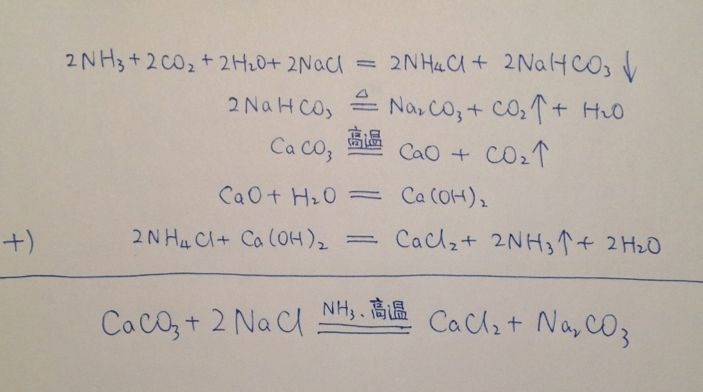 2NH₃+2CO₂+2H₂O+2NaCl = 2NH₄Cl+ 2NaHCO₃↓
2NaHCO₃ ≜ Na₂CO₃+ CO₂↑+ H₂O
CaCO₃ 高温 = CaO + CO₂↑
CaO+H₂O = Ca(OH)₂
+) 2NH₄Cl+ Ca(OH)₂ = CaCl₂+ 2NH₃↑+ 2H₂O
CaCO₃+2NaCl NH₃、高温 = CaCl₂+ Na₂CO₃